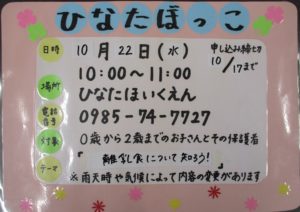 ひなたぼっこ
日時 10月22日(水) 申し込み締切 10/17まで
10:00〜11:00
場所 ひなたほいくえん
電話番号 0985-74-7727
対象 0歳から2歳までのお子さんとその保護者
テーマ 「離乳食について知ろう!」
※雨天時や気候によって内容の変更があります